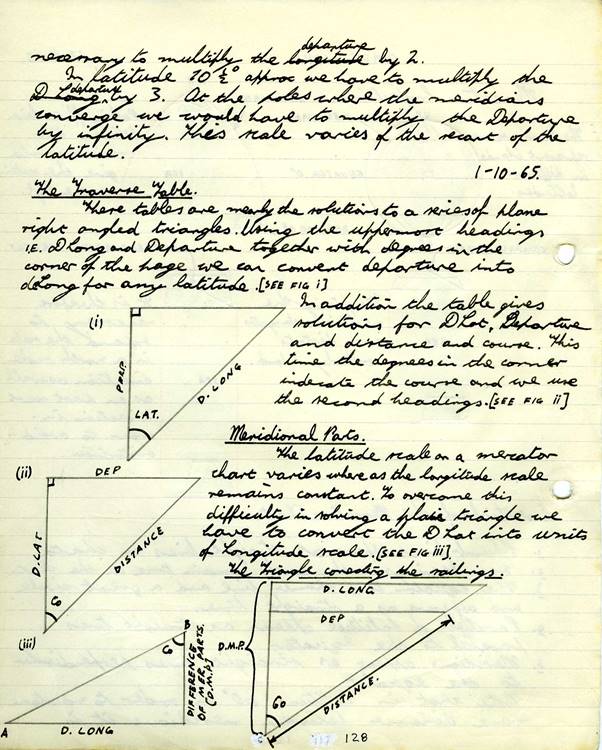 departure
necessary to multiply the longitude by 2.
In latitude 70½° approx we have to multiply the
departure
D Long by 3. At the poles where the meridians
converge we would have to multiply the Departure
by infinity. This scale varies of the secant of the
latitude.
1-10-65.
The Traverse Table.
These tables are the solutions to a series of plane
right angled triangles. Using the uppermost headings
I.E. D Long and Departure together with degrees in the
corner of the page we can convert departure into
dLong for any latitude. [SEE FIG i]
In addition the table gives
solutions for D Lat, Departure
and distance and course. This
time the degrees in the corner
indicate the course and we use
the second headings. [SEE FIG ii]
(i)
D. LONG
LAT.
Meridional Parts.
The latitude scale on a mercator
chart varies where as the longitude scale
remains constant. To overcome this
difficulty in solving a plane triangle we
have to convert the D Lat into units
of Longitude scale. [SEE FIG iii]
The Triangle conecting the sailings.
(ii)
DEP
D. LAT
DISTANCE
Co
(iii)
B
Co
DIFFERENCE
OF MER. PARTS.
(D.M.P)
A
D. LONG
D. LONG
DEP
D.M.P.
Co
DISTANCE.
C
117 128